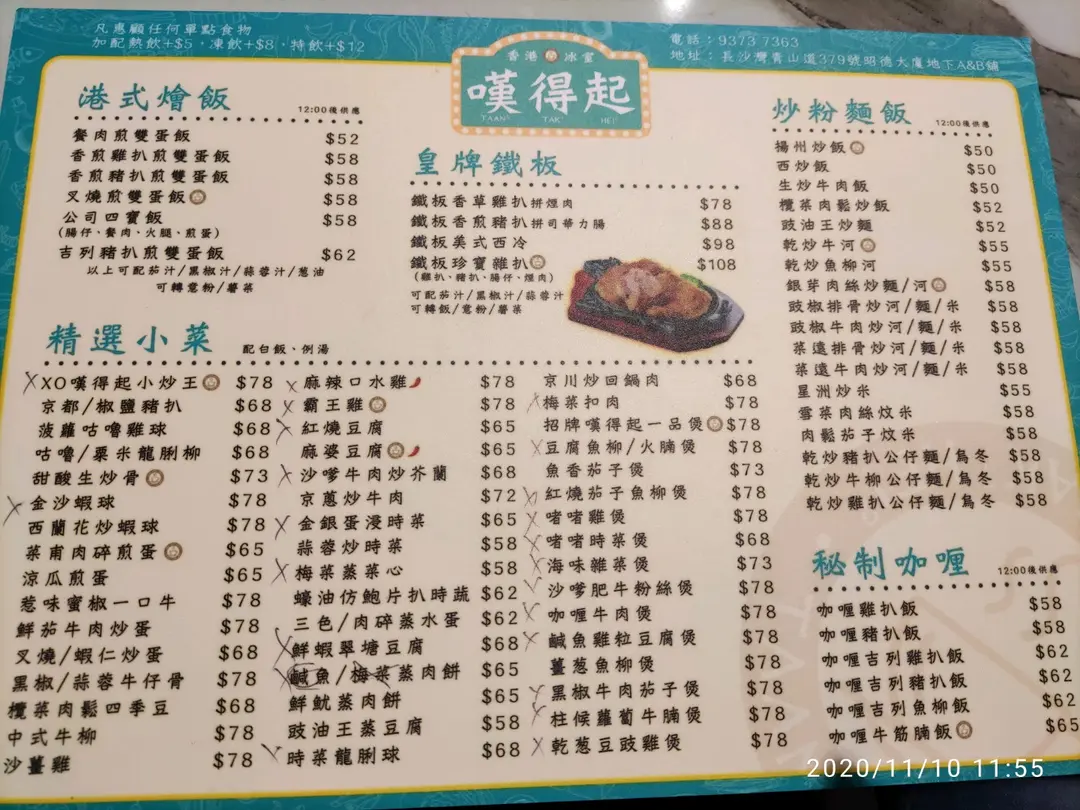 凡惠顧任何單點食物
加配熱飲+$5，凍飲+$8，特飲+$12
香港 冰室
嘆得起
TAAN TAK HEI
電話：9373 7363
地址：長沙灣青山道379號昭德大廈地下A&B舖
港式燴飯 12:00後供應
餐肉煎雙蛋飯 $52
香煎雞扒煎雙蛋飯 $58
香煎豬扒煎雙蛋飯 $58
叉燒煎雙蛋飯 $58
公司四寶飯 $58
(腸仔、餐肉、火腿、煎蛋)
吉列豬扒煎雙蛋飯 $62
以上可配茄汁/黑椒汁/蒜蓉汁/葱油
可轉意粉/薯菜
皇牌鐵板
鐵板香草雞扒拼煙肉 $78
鐵板香煎豬扒拼司華力腸 $88
鐵板美式西冷 $98
鐵板珍寶雜扒 $108
(雞扒、豬扒、腸仔、煙肉)
可配茄汁/黑椒汁/蒜蓉汁
可轉飯/意粉/薯菜
炒粉麵飯 12:00後供應
揚州炒飯 $50
西炒飯 $50
生炒牛肉飯 $50
欖菜肉鬆炒飯 $52
豉油王炒麵 $52
乾炒牛河 $55
乾炒魚柳河 $55
銀芽肉絲炒麵/河 $58
豉椒排骨炒河/麵/米 $58
豉椒牛肉炒河/麵/米 $58
菜遠排骨炒河/麵/米 $58
菜遠牛肉炒河/麵/米 $58
星洲炒米 $55
雪菜肉絲炆米 $58
肉鬆茄子炆米 $58
乾炒豬扒公仔麵/烏冬 $58
乾炒牛柳公仔麵/烏冬 $58
乾炒雞扒公仔麵/烏冬 $58
精選小菜 配白飯、例湯
XO嘆得起小炒王 $78
京都/椒鹽豬扒 $68
菠蘿咕嚕雞球 $68
咕嚕/粟米龍脷柳 $68
甜酸生炒骨 $73
金沙蝦球 $78
西蘭花炒蝦球 $78
菜甫肉碎煎蛋 $65
涼瓜煎蛋 $65
惹味蜜椒一口牛 $78
鮮茄牛肉炒蛋 $78
叉燒/蝦仁炒蛋 $68
黑椒/蒜蓉牛仔骨 $78
欖菜肉鬆四季豆 $68
中式牛柳 $78
沙薑雞 $78
麻辣口水雞 $78
霸王雞 $78
紅燒豆腐 $65
麻婆豆腐 $65
沙嗲牛肉炒芥蘭 $68
京蔥炒牛肉 $72
金銀蛋浸時菜 $65
蒜蓉炒時菜 $58
梅菜蒸菜心 $58
蠔油仿鮑片扒時蔬 $62
三色/肉碎蒸水蛋 $62
鮮蝦翠塘豆腐 $68
鹹魚/梅菜蒸肉餅 $65
鮮魷蒸肉餅 $65
豉油王蒸豆腐 $58
時菜龍脷球 $68
京川炒回鍋肉 $68
梅菜扣肉 $78
招牌嘆得起一品煲 $78
豆腐魚柳/火腩煲 $78
魚香茄子煲 $73
紅燒茄子魚柳煲 $78
啫啫雞煲 $78
啫啫時菜煲 $68
海味雜菜煲 $73
沙嗲肥牛粉絲煲 $78
咖喱牛肉煲 $78
鹹魚雞粒豆腐煲 $78
薑葱魚柳煲 $78
黑椒牛肉茄子煲 $78
柱候蘿蔔牛腩煲 $78
乾葱豆豉雞煲 $78
秘制咖喱 12:00後供應
咖喱雞扒飯 $58
咖喱豬扒飯 $58
咖喱吉列雞扒飯 $62
咖喱吉列豬扒飯 $62
咖喱吉列魚柳飯 $62
咖喱牛筋腩飯 $65
2020/11/10 11:55